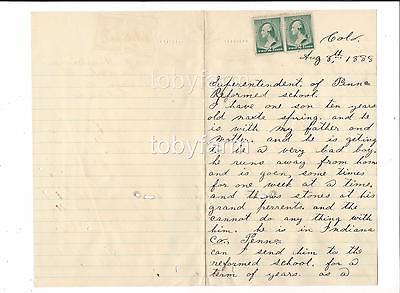 Colo.
Aug 5th, 1888
Superentendent, of Penn
Reformed school.
I have one son ten years
old naste spring. and he
is with my father and
mother. and he is geting
to be a very bad boy.
he runs away from hom
and is goen, some times
for one week at a time,
and thros stones at his
grand perrents. and the
cannot do any thing with
him. he is in Indiana
Co. Penna
can I send him to the
reformed school. for a
term of years. as a
tobyfarm
tobyfarm
tobyfarm